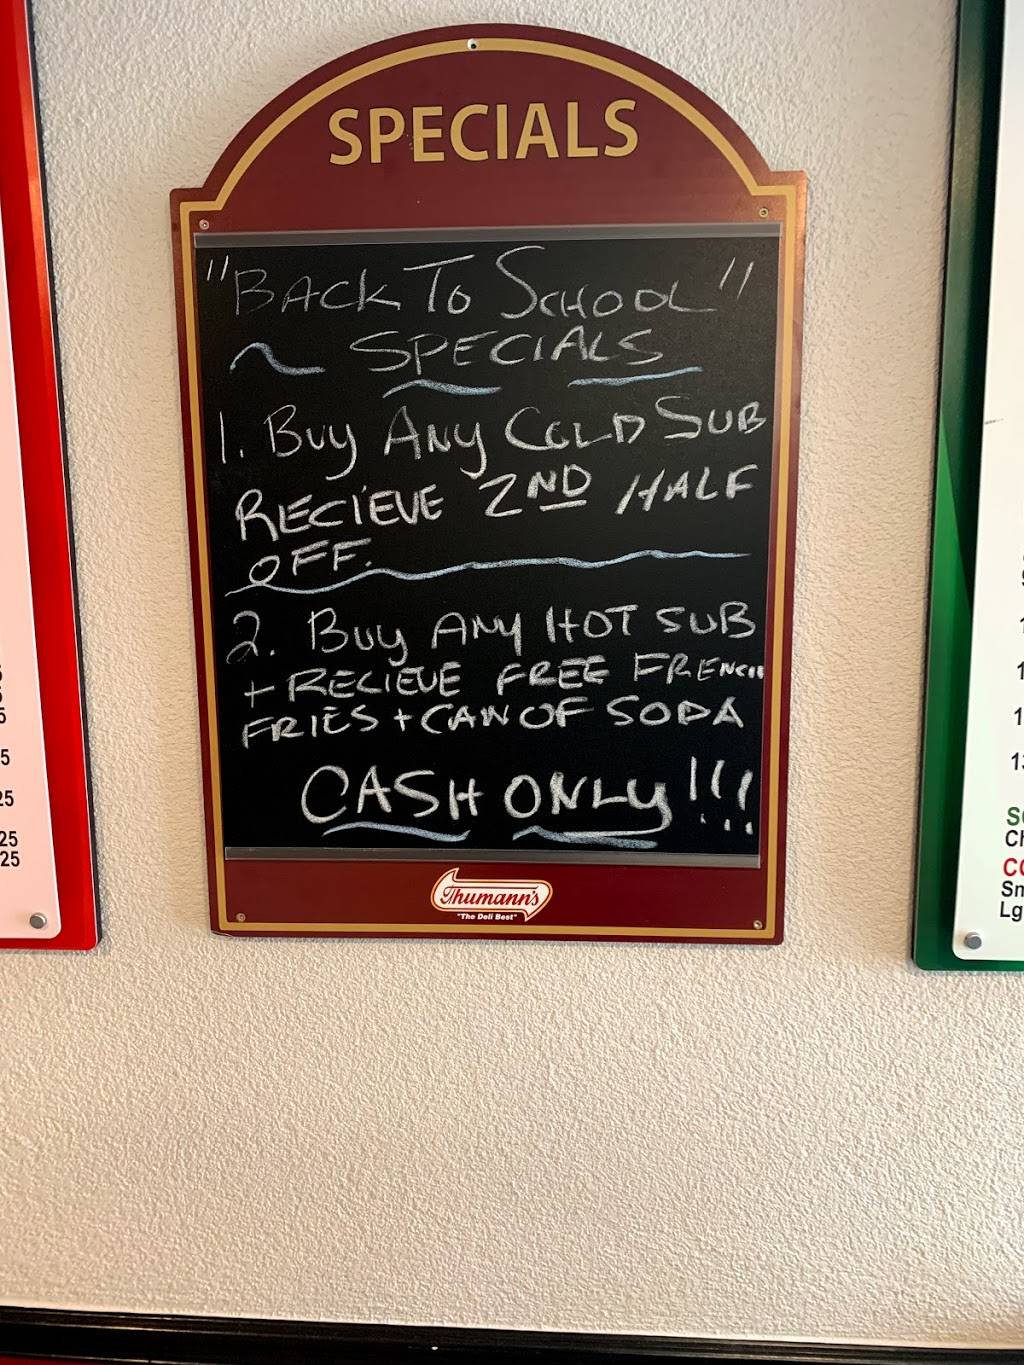 SPECIALS
"BACK TO SCHOOL"
~ SPECIALS
1. BUY ANY COLD SUB
RECIEVE 2ND HALF
OFF.
2. BUY ANY HOT SUB
+ RECIEVE FREE FRENCH
FRIES + CAN OF SODA
CASH ONLY!!!
Thumann's
"The Deli Best"
5
25
25
25
Sm
Lg